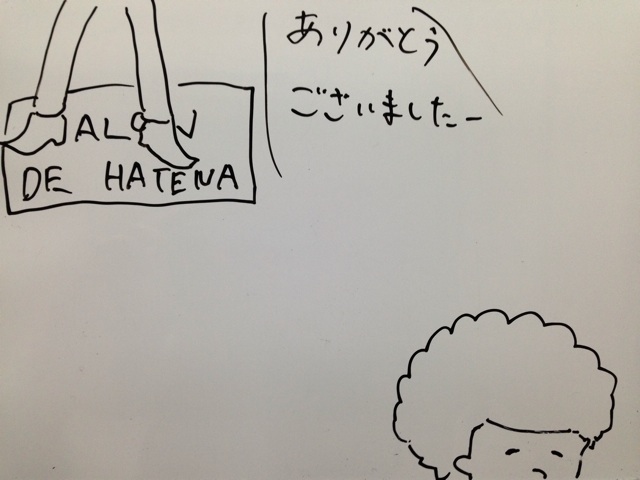 ありがとう
ございましたー
ALON
DE HATENA